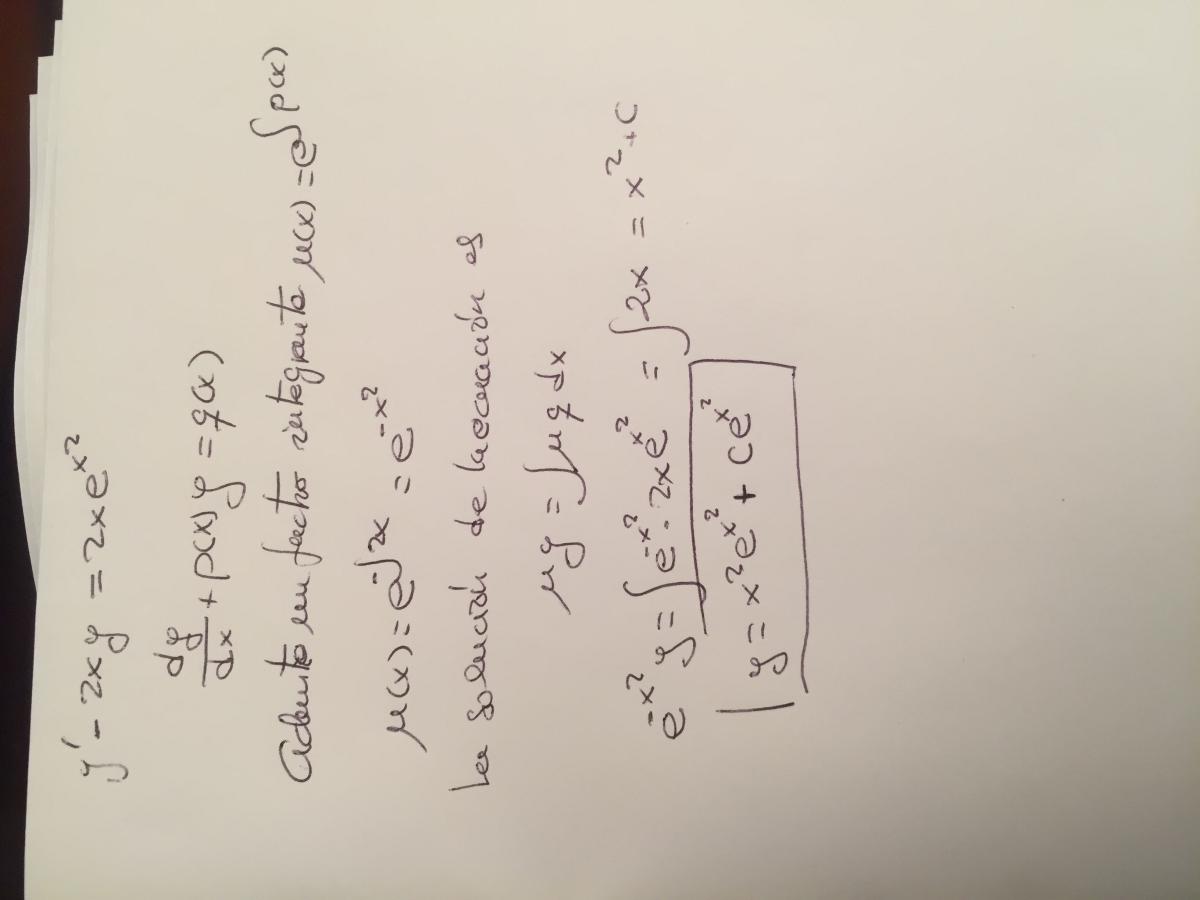 y' - 2xy = 2xe^{x^2}
dy/dx + p(x)y = q(x)
Admite un factor integrante μ(x) = e^{∫p(x)}
μ(x) = e^{-∫2x} = e^{-x^2}
La solución de la ecuación es
μy = ∫μq dx
e^{-x^2} y = ∫e^{-x^2} · 2xe^{x^2} = ∫2x = x^2 + C
y = x^2e^{x^2} + Ce^{x^2}